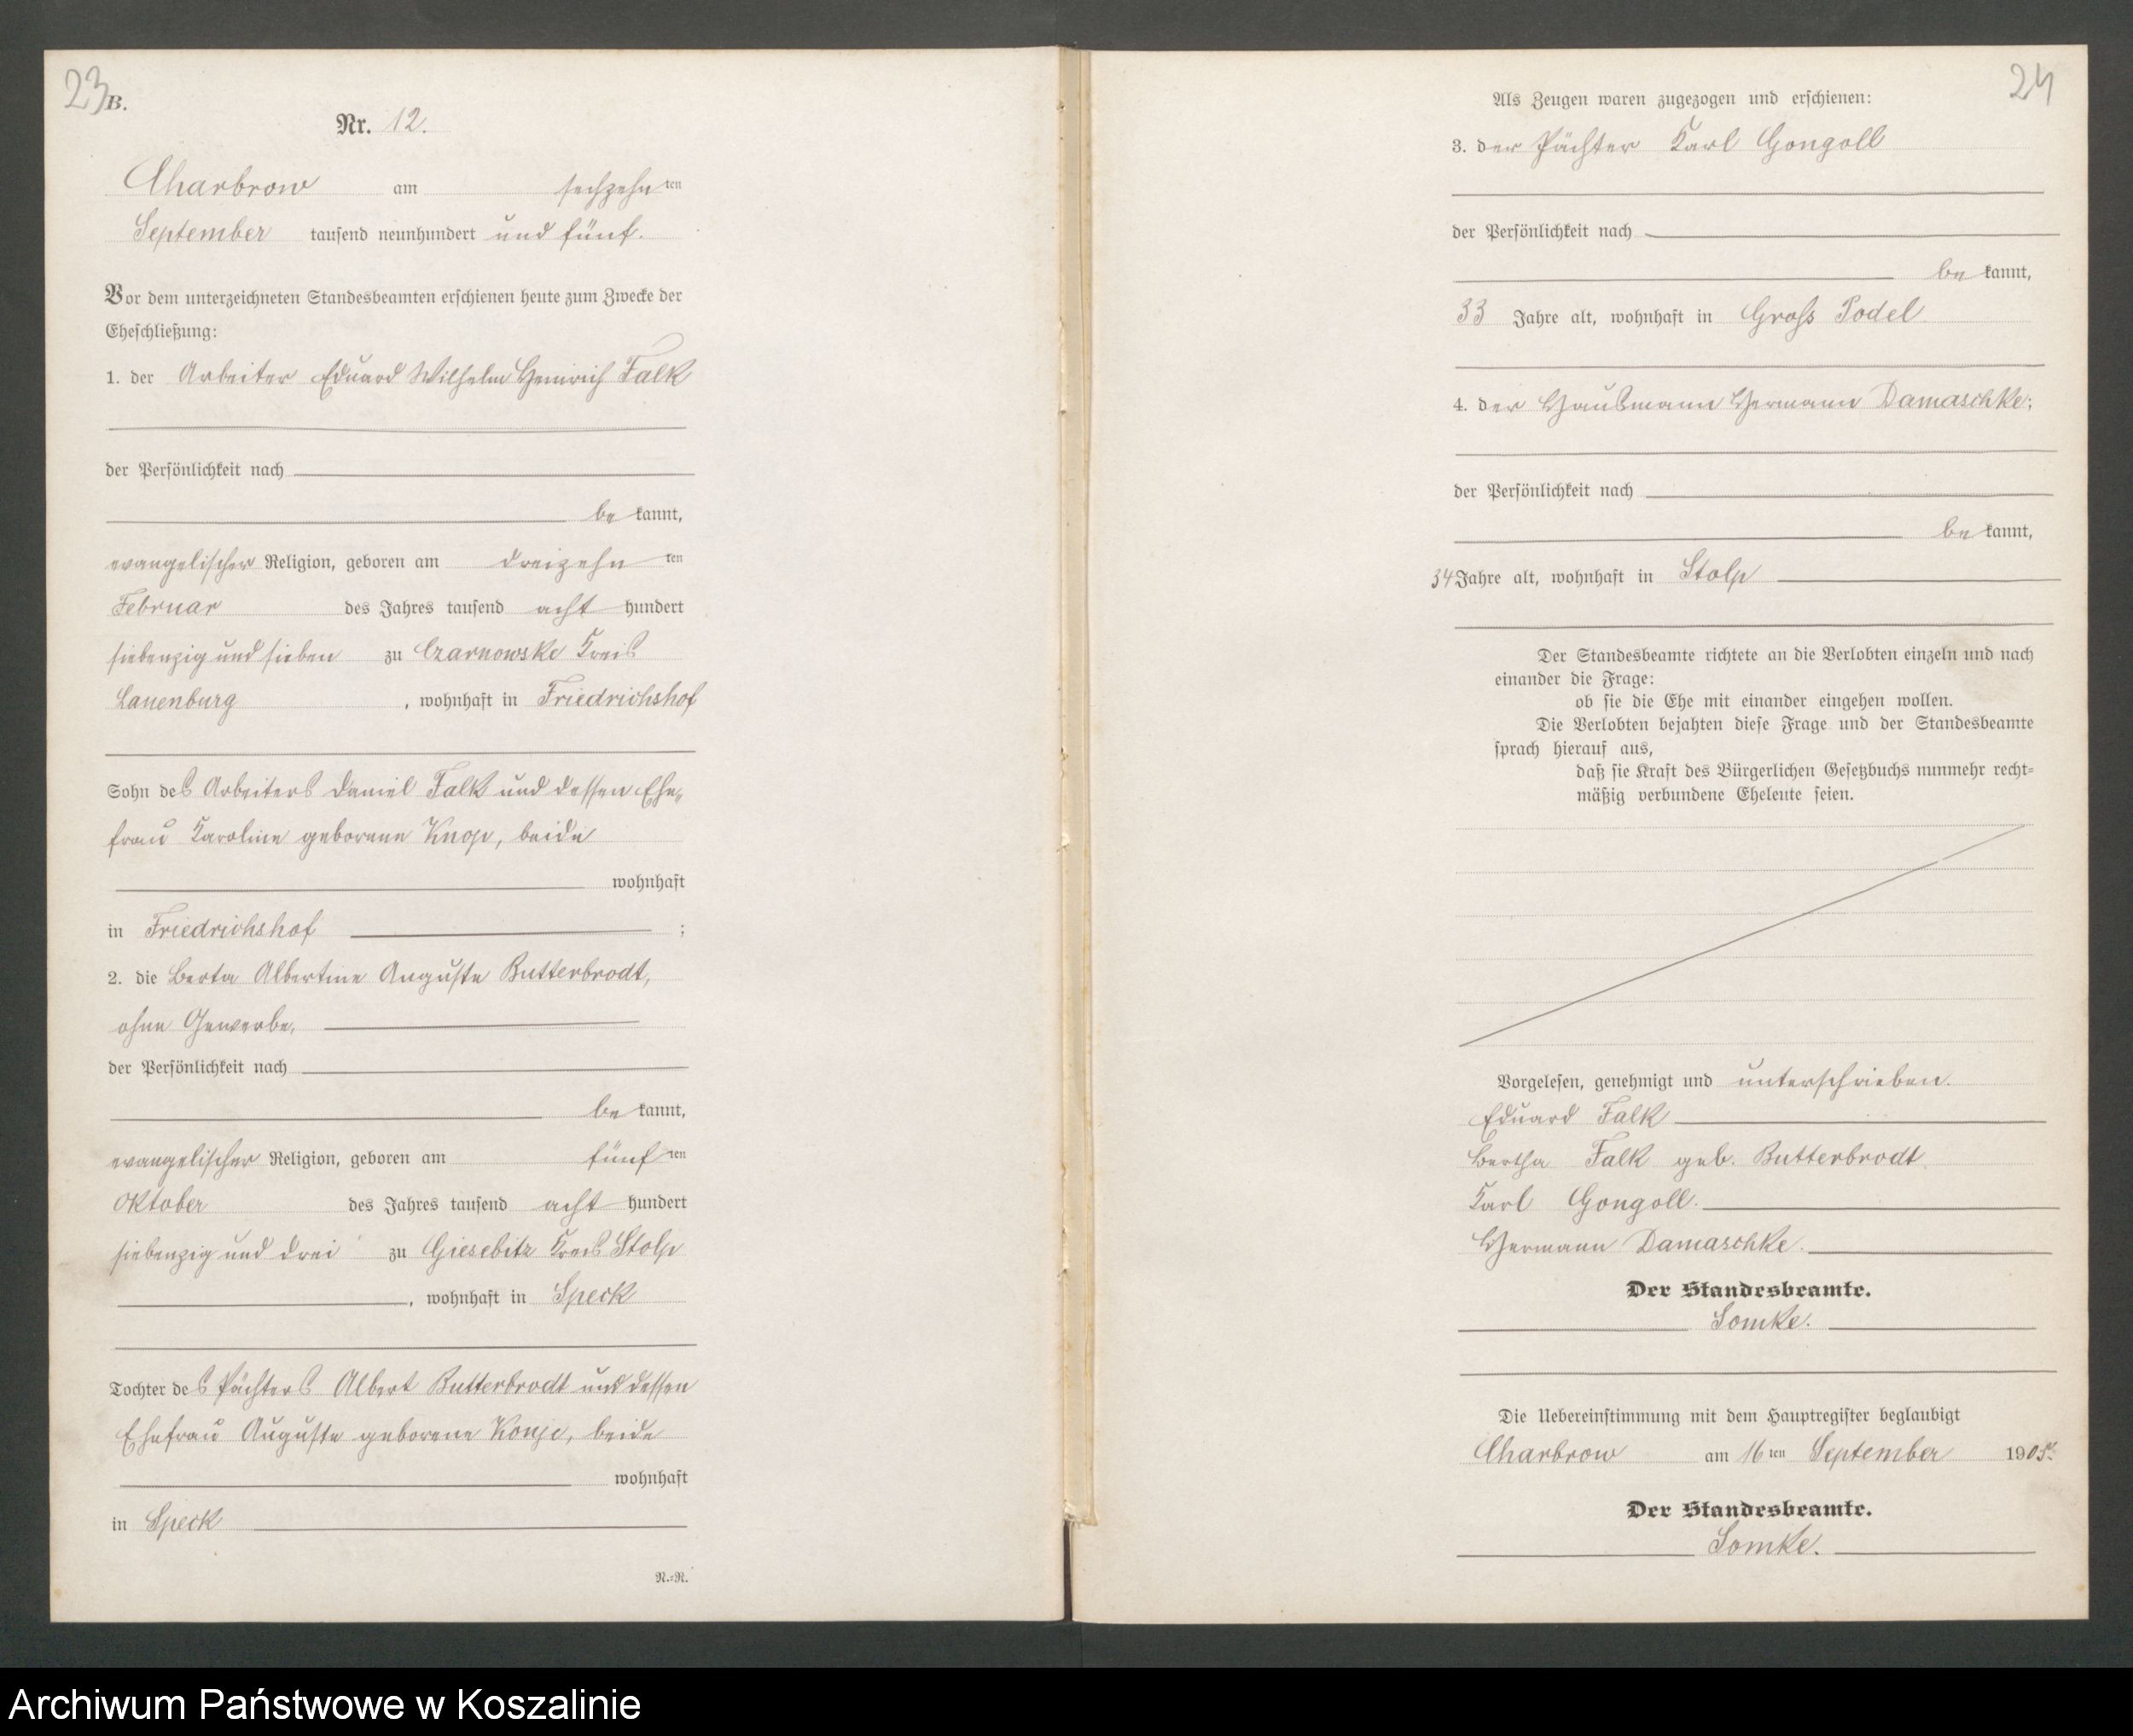 23
B.
Nr. 12.
Charbrow am sechzehn ten
September tausend neunhundert und fünf.
Vor dem unterzeichneten Standesbeamten erschienen heute zum Zwecke der
Eheschließung:
1. der Arbeiter Eduard Wilhelm Heinrich Falk
der Persönlichkeit nach
be kannt,
evangelischer Religion, geboren am dreizehn ten
Februar des Jahres tausend acht hundert
siebenzig und sieben zu Czarnowske Kreis
Lauenburg, wohnhaft in Friedrichshof
Sohn des Arbeiters Daniel Falk und dessen Ehe„
frau Karoline geborene Knop, beide
wohnhaft
in Friedrichshof ;
2. die Berta Albertine Auguste Butterbrodt,
ohne Gewerbe,
der Persönlichkeit nach
be kannt,
evangelischer Religion, geboren am fünf ten
Oktober des Jahres tausend acht hundert
siebenzig und drei zu Giesebitz Kreis Stolp
, wohnhaft in Speck
Tochter des Pächters Albert Butterbrodt und dessen
Ehefrau Auguste geborene beide
wohnhaft
in Speck
N.=R.
24
Als Zeugen waren zugezogen und erschienen:
3. der Pächter Karl Gongoll
der Persönlichkeit nach
be kannt,
33 Jahre alt, wohnhaft in Gross Podel
4. der Hausmann Hermann Damaschke;
der Persönlichkeit nach
be kannt,
34 Jahre alt, wohnhaft in Stolp
Der Standesbeamte richtete an die Verlobten einzeln und nach
einander die Frage:
ob sie die Ehe mit einander eingehen wollen.
Die Verlobten bejahten diese Frage und der Standesbeamte
sprach hierauf aus,
daß sie Kraft des Bürgerlichen Gesetzbuchs nunmehr recht=
mäßig verbundene Eheleute seien.
Vorgelesen, genehmigt und unterschrieben.
Eduard Falk
Bertha Falk geb. Butterbrodt.
Karl Gongoll.
Hermann Damaschke.
Der Standesbeamte.
Somke.
Die Uebereinstimmung mit dem Hauptregister beglaubigt
Charbrow am 16 ten September 1905.
Der Standesbeamte.
Somke.
Archiwum Państwowe w Koszalinie